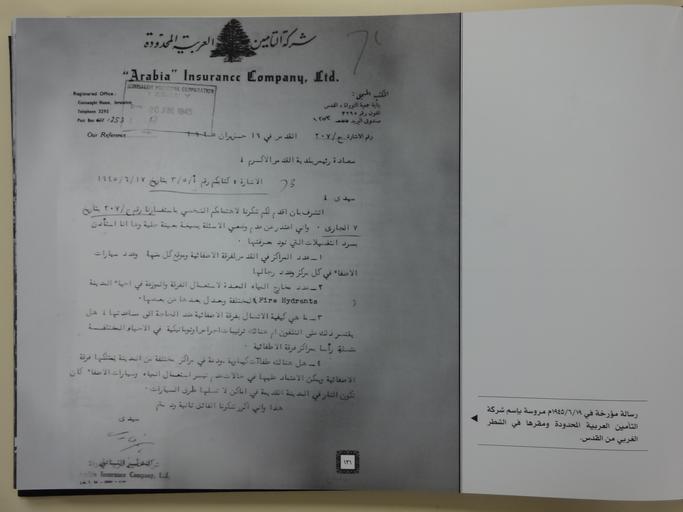 شركة التأمين العربية المحدودة
"Arabia" Insurance Company, Ltd.
Registered Office :
Connaught House, Jerusalem
Telephone 3295
Post Box 1253
JERUSALEM MUNICIPAL CORPORATION
المكتب الرئيسي :
بناية جمعية التوراة ، القدس
تلفون رقم ٣٢٩٥
صندوق البريد
Our Reference
القدس في ١٦ حزيران ١٩٤٥
رقم الاشارة ع/٢٠٧
سعادة رئيس بلدية القدس الاكرم ،
الاشارة : كتابكم رقم أ/٣/٥ بتاريخ ١٩٤٥/٦/١٧
سيدي ،
اتشرف بان اقدم لكم تشكرنا لاهتمامكم الشخصي باستفسارنا رقم ع/٢٠٧ بتاريخ
٧ الجارى . واني اعتذر عن عدم وضعي الاسئلة بصيغة جلية وها انا استأذن
بسرد التفصيلات التي نود معرفتها .
١ – عدد المراكز في القدس لفرقة الاطفائية وموقع كل منها وعدد سيارات
الاطفاء في كل مركز وعدد رجالها
٢ – عدد مخارج المياه المعدة لاستعمال الفرقة والموزعة في احياء المدينة
المختلفة Fire Hydrants ومعدل بعدها عن بعضها .
٣ – ما هي كيفية الاتصال بفرقة الاطفائية عند الحاجة الى مساعدتها ، هل
يقتصر ذلك على التلفون ام هنالك ترتيبات اجراس اوتوماتيكية في الاحياء المختلفة
متصلة رأسا بمراكز فرقة الاطفائية .
٤ – هل هنالك طفآت كيماوية مودعة في مراكز مختلفة من المدينة يمتلكها فرقة
الاطفائية ويمكن الاعتماد عليها في حالات عدم تيسر استعمال المياه وسيارات الاطفاء كأن
تكون النار في المدينة القديمة في اماكن لا تصلها طرق السيارات .
هذا واني اكرر تشكرنا الفائق ثانية
سيدى
Insurance Company, Ltd.
١٣١
رسالة مؤرخة في ١٩٤٥/٦/١٩م مروسة بإسم شركة
التأمين العربية المحدودة ومقرها في الشطر
الغربي من القدس.